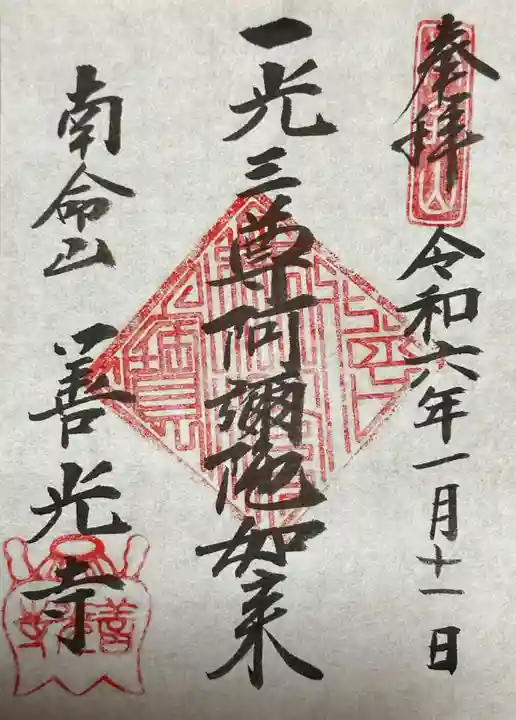 奉拝
令和六年一月十一日
一光三尊阿彌陀如来
南命山
善光寺
善光寺